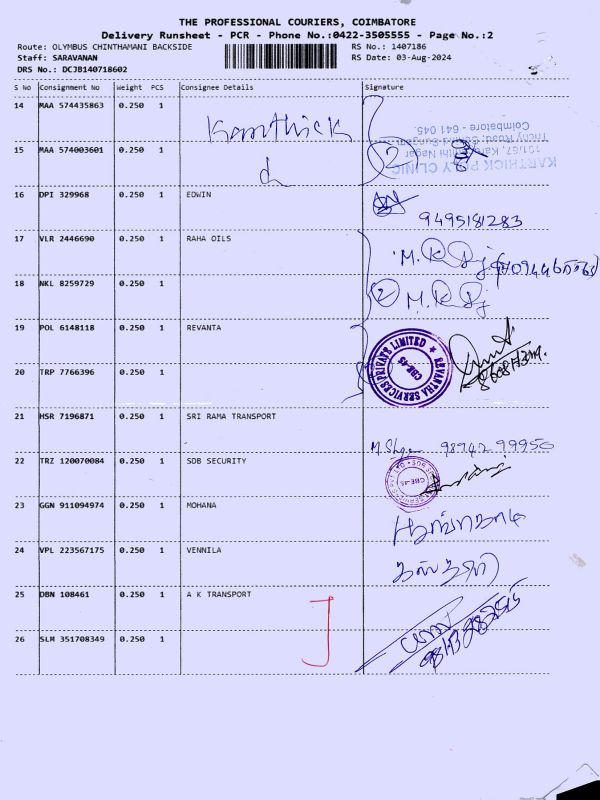 THE PROFESSIONAL COURIERS, COIMBATORE
Delivery Runsheet - PCR - Phone No.:0422-3505555 - Page No.:2
Route: OLYMBUS CHINTHAMANI BACKSIDE RS No.: 1407186
Staff: SARAVANAN RS Date: 03-Aug-2024
DRS No.: DCJB140718602
S No Consignment No Weight PCS Consignee Details Signature
14 MAA 574435863 0.250 1
Karthick
KARTHICK POLY CLINIC
Coimbatore - 641 045.
15 MAA 574003601 0.250 1 2
16 DPI 329968 0.250 1 EDWIN
9495181283
17 VLR 2446690 0.250 1 RAHA OILS
18 NKL 8259729 0.250 1 2
19 POL 6148118 0.250 1 REVANTA
REVANTHA SERVICES PRIVATE LIMITED
CBE-45
20 TRP 7766396 0.250 1
21 HSR 7196871 0.250 1 SRI RAMA TRANSPORT
98942 99950
22 TRZ 120070084 0.250 1 SDB SECURITY
CBE-45
23 GGN 911094974 0.250 1 MOHANA
24 VPL 223567175 0.250 1 VENNILA
25 DBN 108461 0.250 1 A K TRANSPORT
26 SLM 351708349 0.250 1